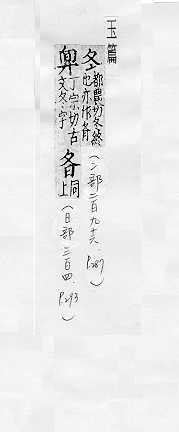 玉篇
冬 都農切冬終
也亦作
(冫部二百九十六, P.287)
丁宗切古
文冬字
同上
(日部三百四, P.293)